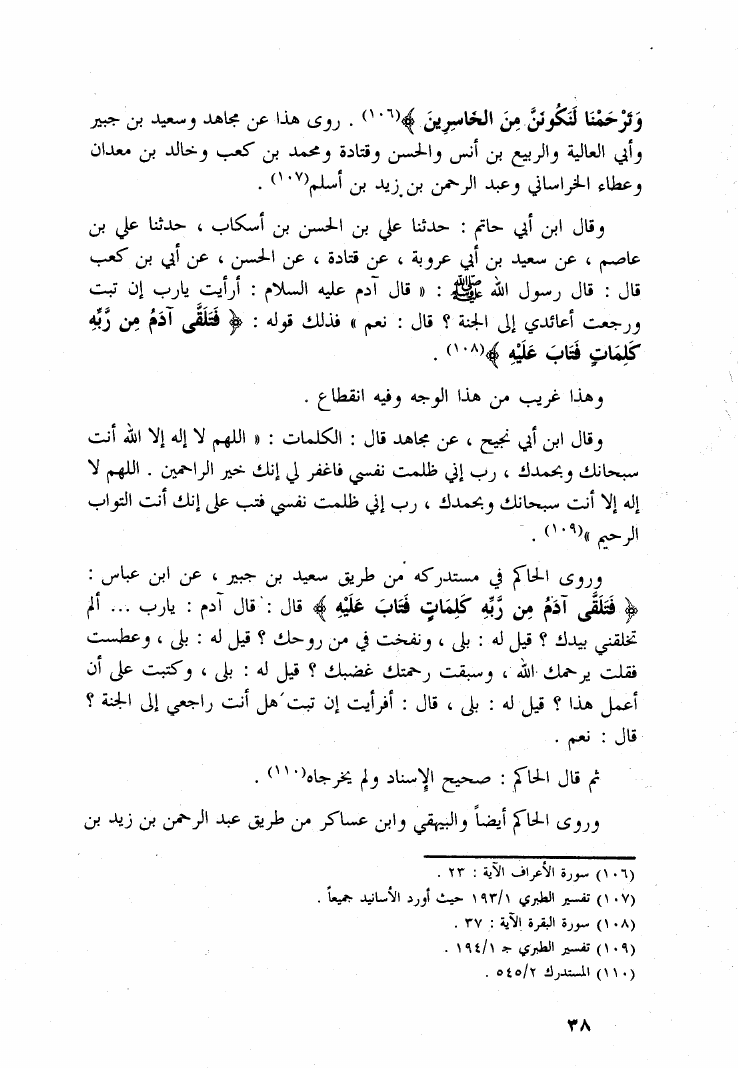 وَتَرْحَمْنَا لَنَكُونَنَّ مِنَ الخَاسِرِينَ ﴾(١٠٦) . روى هذا عن مجاهد وسعيد بن جبير
وأبي العالية والربيع بن أنس والحسن وقتادة ومحمد بن كعب وخالد بن معدان
وعطاء الخراساني وعبد الرحمن بن زيد بن أسلم(١٠٧) .
وقال ابن أبي حاتم : حدثنا علي بن الحسن بن أسكاب ، حدثنا علي بن
عاصم ، عن سعيد بن أبي عروبة ، عن قتادة ، عن الحسن ، عن أبي بن كعب
قال : قال رسول الله ﷺ : « قال آدم عليه السلام : أرأيت يارب إن تبت
ورجعت أعائدي إلى الجنة ؟ قال : نعم » فذلك قوله : ﴿ فَتَلَقَّى آدَمُ مِن رَّبِّهِ
كَلِمَاتٍ فَتَابَ عَلَيْهِ ﴾(١٠٨) .
وهذا غريب من هذا الوجه وفيه انقطاع .
وقال ابن أبي نجيح ، عن مجاهد قال : الكلمات : « اللهم لا إله إلا الله أنت
سبحانك وبحمدك ، رب إني ظلمت نفسي فاغفر لي إنك خير الراحمين . اللهم لا
إله إلا أنت سبحانك وبحمدك ، رب إني ظلمت نفسي فتب على إنك أنت التواب
الرحيم »(١٠٩) .
وروى الحاكم في مستدركه من طريق سعيد بن جبير ، عن ابن عباس :
﴿ فَتَلَقَّى آدَمُ مِن رَّبِّهِ كَلِمَاتٍ فَتَابَ عَلَيْهِ ﴾ قال : قال آدم : يارب ... ألم
تخلقني بيدك ؟ قيل له : بلى ، ونفخت في من روحك ؟ قيل له : بلى ، وعطست
فقلت يرحمك الله ، وسبقت رحمتك غضبك ؟ قيل له : بلى ، وكتبت على أن
أعمل هذا ؟ قيل له : بلى ، قال : أفرأيت إن تبت هل أنت راجعي إلى الجنة ؟
قال : نعم .
ثم قال الحاكم : صحيح الإسناد ولم يخرجاه(١١٠) .
وروى الحاكم أيضاً والبيهقي وابن عساكر من طريق عبد الرحمن بن زيد بن
(١٠٦) سورة الأعراف الآية : ٢٣ .
(١٠٧) تفسير الطبري ١٩٣/١ حيث أورد الأسانيد جميعاً .
(١٠٨) سورة البقرة الآية : ٣٧ .
(١٠٩) تفسير الطبري جـ ١٩٤/١ .
(١١٠) المستدرك ٥٤٥/٢ .
٣٨